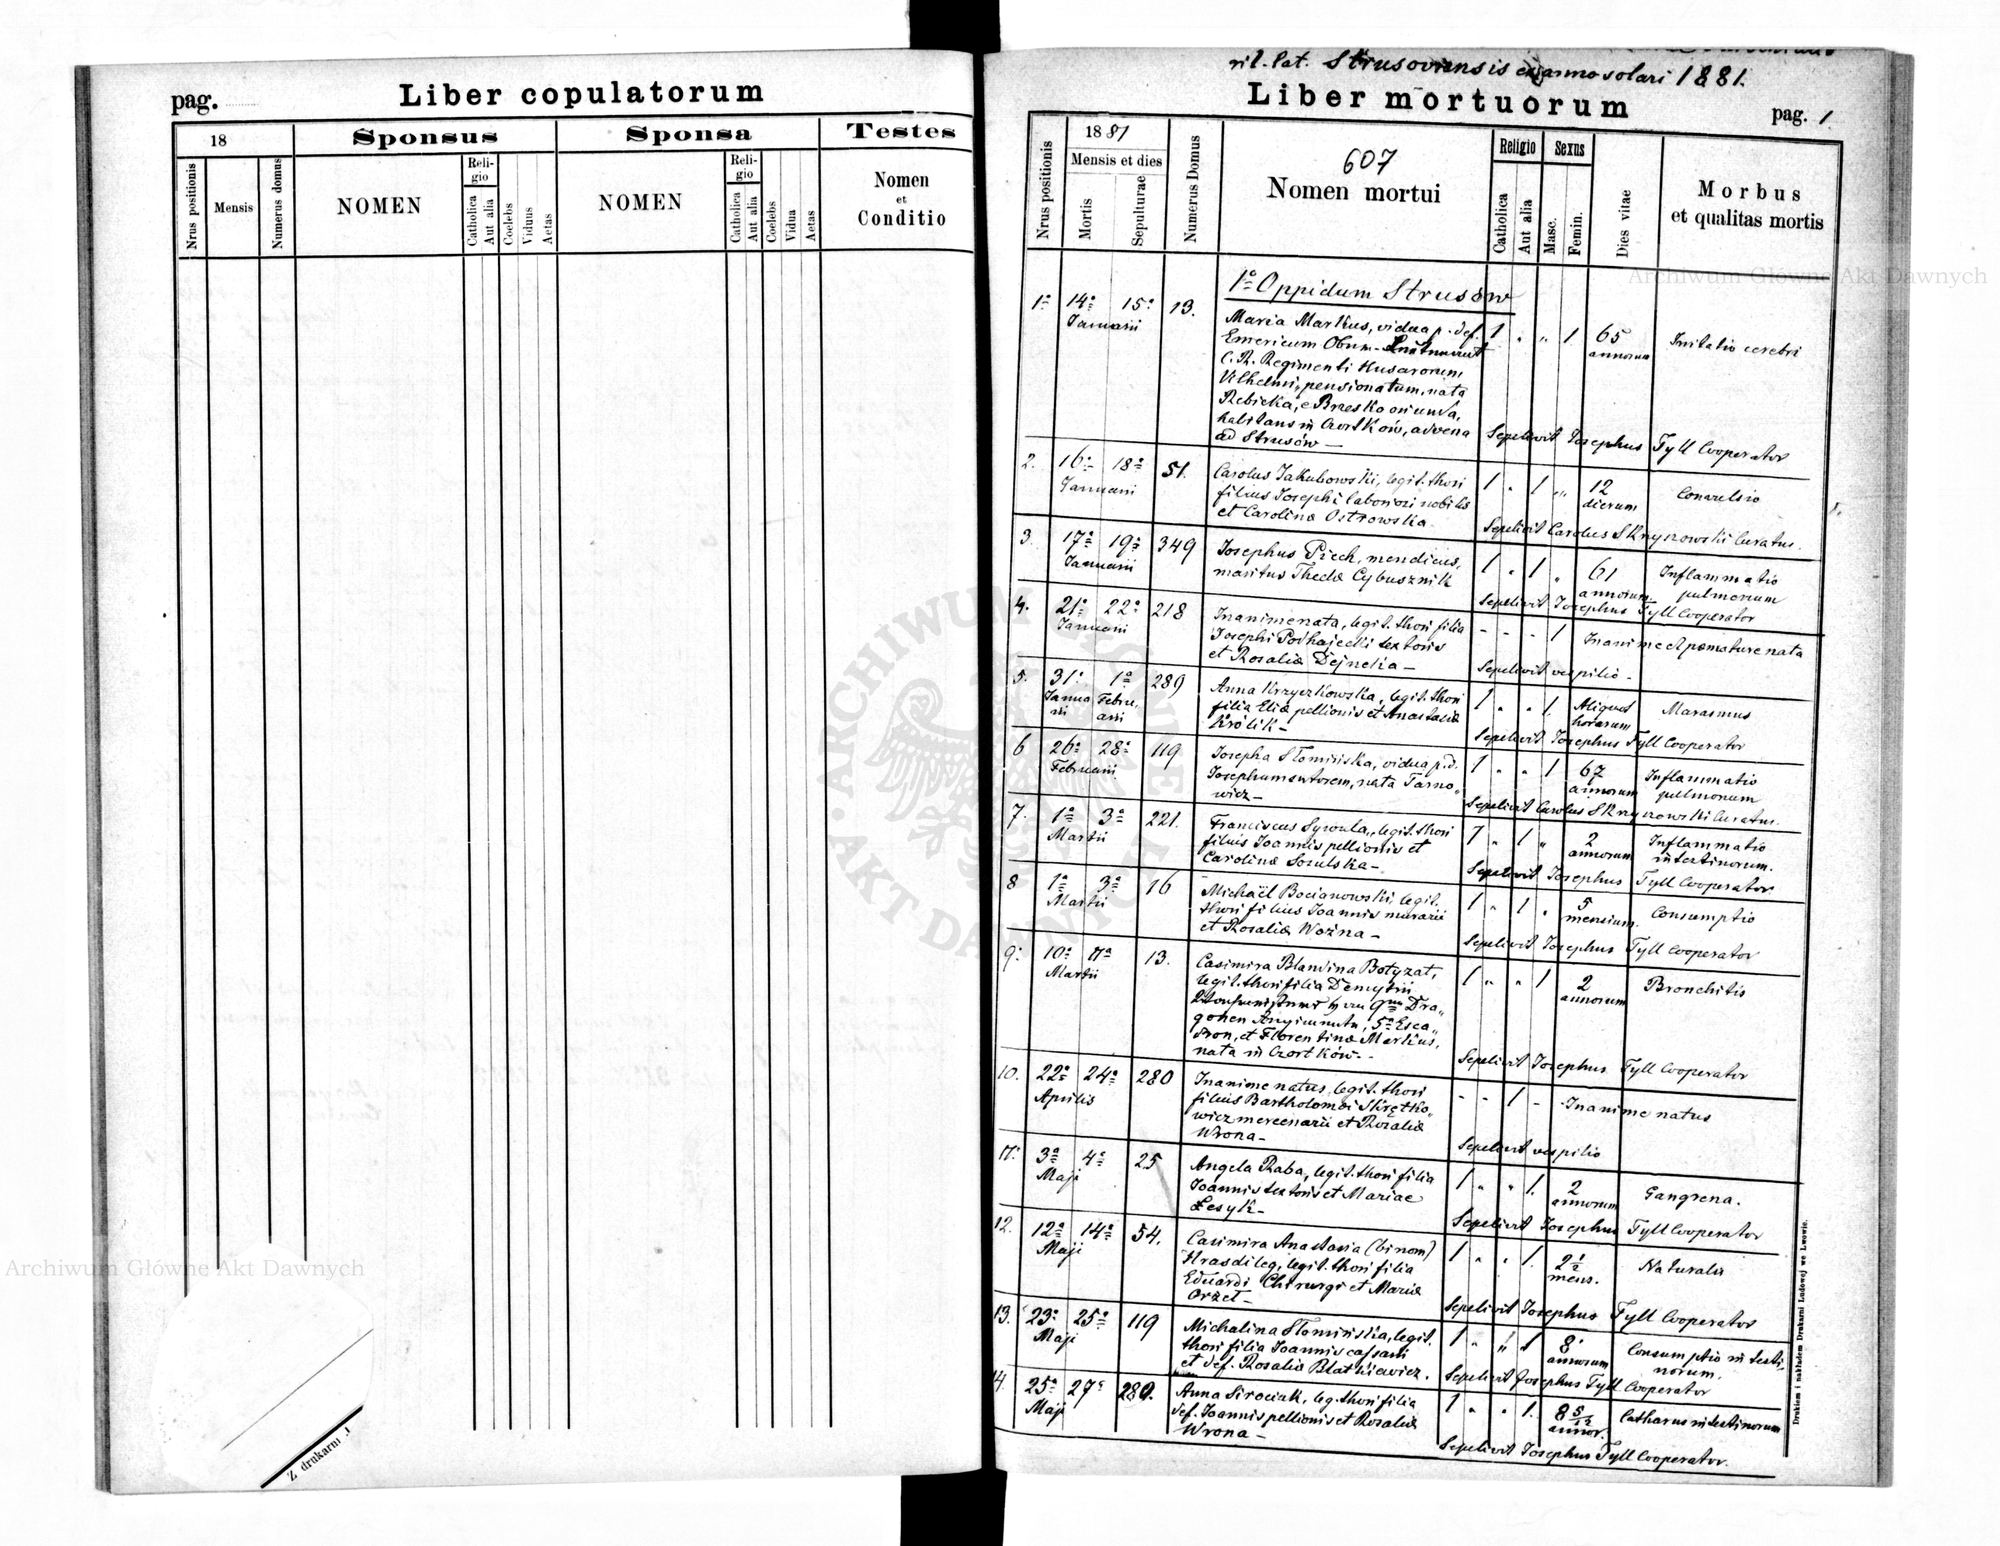 pag.
Liber copulatorum
18
Sponsus
Sponsa
Testes
Nrus positionis
Mensis
Numerus domus
NOMEN
Religio
Catholica
Aut alia
Coelebs
Viduus
Aetas
NOMEN
Religio
Catholica
Aut alia
Coelebs
Vidua
Aetas
Nomen
et
Conditio
Z drukarni J
rit. lat. Strusoviensis anno solari 1881.
Liber mortuorum
pag. 1.
Nrus positionis
1881
Mensis et dies
Mortis
Sepulturae
Numerus Domus
607
Nomen mortui
Religio
Catholica
Aut alia
Sexus
Masc.
Femin.
Dies vitae
Morbus
et qualitas mortis
1º Oppidum Strusów
1º 14ª 15ª 13. Maria Markus, vidua p. def. 1 " " 1 65 Irritatio cerebri
Januarii annorum
Emericum
C. R. Regimenti Husarorum
Vilhelmi, pensionatum, nata
Rebicka, e Brzesko oriunda,
habitans in Czortków, advena
ad Strusów —
Sepelivit Josephus Tyll Cooperator
2. 16ª 18ª 51. Carolus Jakubowski, legit. thori 1 " 1 " 12 Convulsio
Januarii filius Josephi nobilis dierum
et Carolinæ Ostrowska.
Sepelivit Carolus Skrzyszowski Curatus.
3. 17ª 19ª 349 Josephus Piech, mendicus, 1 " 1 " 61 Inflammatio
Januarii maritus Theclæ Cybusznik annorum pulmonum
Sepelivit Josephus Tyll Cooperator
4. 21ª 22ª 218 Inanime nata, legit. thori filia - - - 1 Inanime et præmature nata
Januarii Josephi Podhajecki textoris
et Rosaliæ Dejneka —
Sepelivit vespilio -
5. 31ª 1ª 289 Anna Krzyczkowska, legit. thori 1 " " 1. Aliquot Marasmus
Januarii Februarii filia Eliæ pellionis et Anastasiæ horarum
Królik —
Sepelivit Josephus Tyll Cooperator
6 26ª 28ª 119 Josepha Słomińska, vidua p. d. 1 " " 1 67 Inflammatio
Februarii Josephum sutorem, nata Tarno- annorum pulmonum
wicz —
Sepelivit Carolus Skrzyszowski Curatus.
7. 1ª 3ª 221. Franciscus Syroula, legit. thori 1 " 1 " 2 Inflammatio
Martii filius Joannis pellionis et annorum intestinorum.
Carolinæ Sosulska —
Sepelivit Josephus Tyll Cooperator
8 1ª 3ª 16 Michaël Bocianowski, legit. 1 " 1 " 5 Consumptio
Martii thori filius Joannis murarii mensium.
et Rosaliæ Woźna —
Sepelivit Josephus Tyll Cooperator
9. 10ª 11ª 13. Casimira Blandina Botyzat, 1 " " 1 2 Bronchitis
Martii legit. thori filia Demytrii annorum
9ten Dra-
goner , 5ª Esca-
dron, et Florentinæ Markus,
nata in Czortków —
Sepelivit Josephus Tyll Cooperator
10. 22ª 24ª 280 Inanime natus, legit. thori - - 1 - Inanime natus
Aprilis filius Bartholomæi Skrętko-
wicz mercenarii et Rosaliæ
Wrona —
Sepelivit vespilio
11. 3ª 4ª 25 Angela Raba, legit. thori filia 1 " " 1. 2 Gangrena.
Maji Joannis textoris et Mariae annorum
Lesyk —
Sepelivit Josephus Tyll Cooperator
12. 12ª 14ª 54. Casimira Anastasia (binom) 1 " " 1. 2 1/2 Naturalis
Maji Hrasdileg, legit. thori filia mens.
Eduardi Chirurgi et Mariæ
Orzet —
Sepelivit Josephus Tyll Cooperator
13. 23ª 25ª 119 Michalina Słomińska, legit. 1 " " 1 8 Consumptio intesti-
Maji thori filia Joannis annorum norum.
et def. Rosaliæ Blatkiewicz.
Sepelivit Josephus Tyll Cooperator
14. 25ª 27ª 280. Anna Sirociak, leg. thori filia 1 " " 1. 8 5/12 Catharus intestinorum
Maji def. Joannis pellionis et Rosaliæ annor.
Wrona —
Sepelivit Josephus Tyll Cooperator.
Drukiem i nakładem Drukarni Ludowej we Lwowie.
Archiwum Główne Akt Dawnych
Archiwum Główne Akt Dawnych
ARCHIWUM GŁÓWNE AKT DAWNYCH